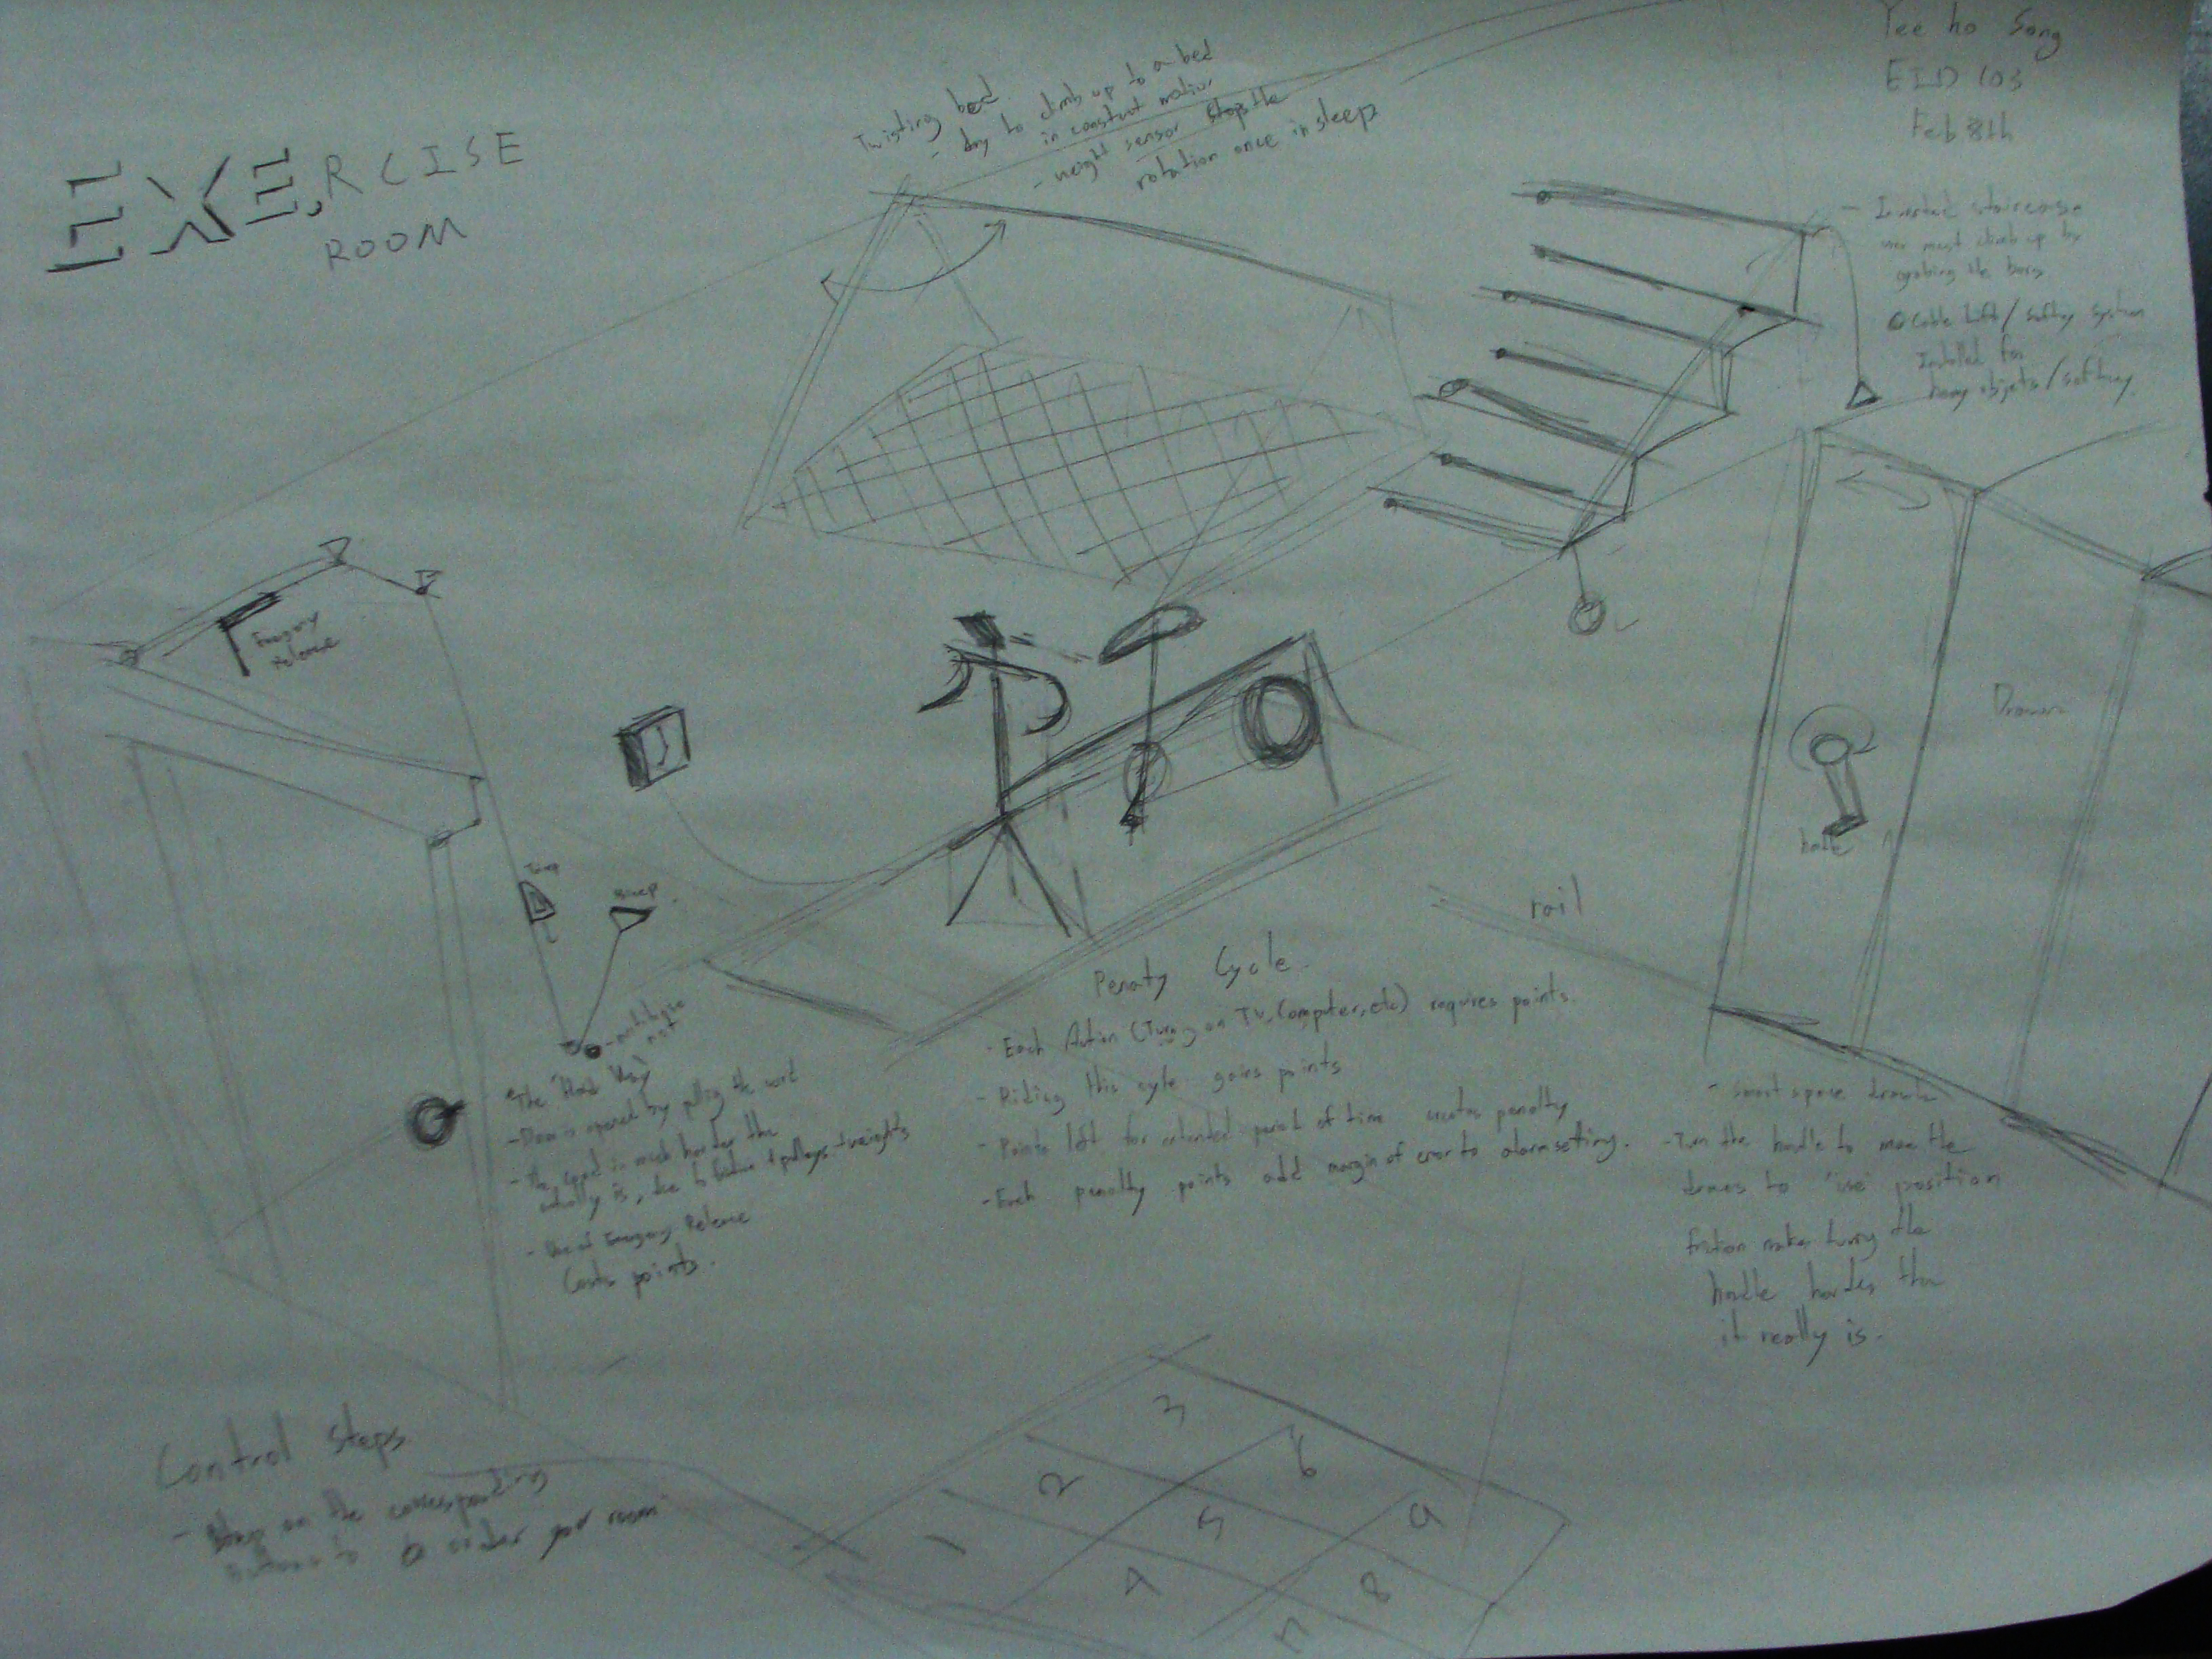 EXERCISE
ROOM
Yee ho Song
EID 103
Feb 8th
Twisting bed
- try to climb up to a bed
in constant motion
- weight sensor stops the
rotation once in sleep
- Inverted staircase
user must climb up by
grabing the bars
Cable Lift / saftey system
Installed for
heavy objets / saftey
Emergency
release
Bicep
"The Hard Way"
- Door is opened by pulling the cord
is much harder
actually is, due to friction & pulleys + weights
- Use of Emergency Release
Costs points.
Penaty Cycle
- Each Action (Turng on TV, Computer, etc) requires points.
- Riding this cycle gains points
- Points left for extended period of time creates penalty
- Each penalty points add margin of error to alarm setting.
rail
Drawers
- smart space drawer
- Turn the handle to move the
drawers to 'use' position
friction makes turng the
handle harder than
it really is.
Control Steps
- on the corresponding
buttons to order your room
3
2
6
1
5
9
4
8
7